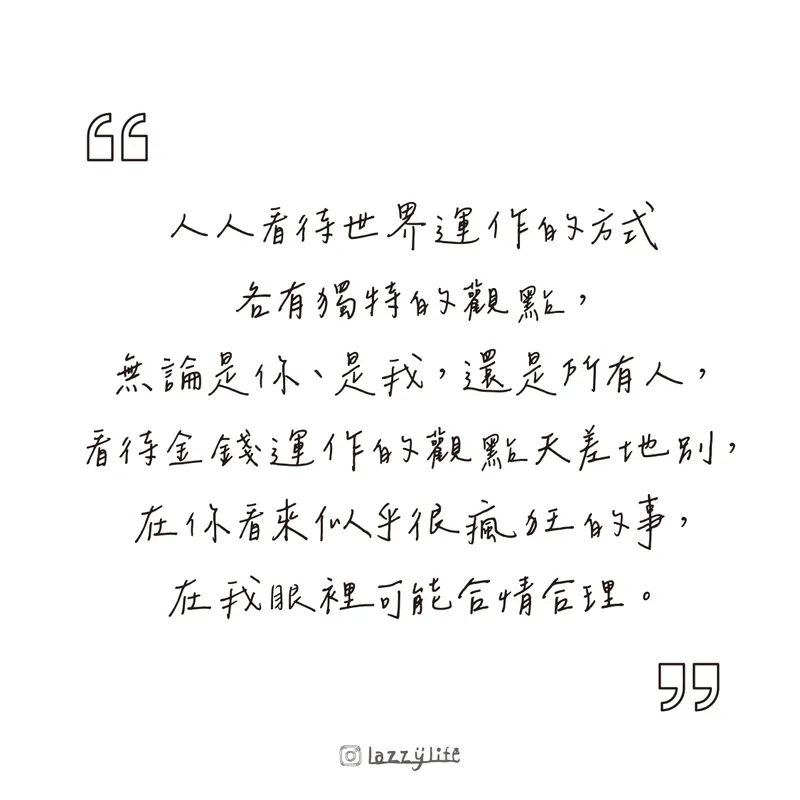 “
人人看待世界運作的方式
各有獨特的觀點，
無論是你、是我，還是所有人，
看待金錢運作的觀點天差地別，
在你看來似乎很瘋狂的事，
在我眼裡可能合情合理。
”
lazzylife